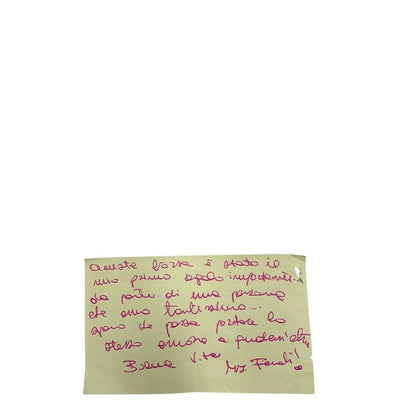 Questa borsa è stata il
mio primo regalo importante
da parte di una persona
che amo tantissimo...
spero che possa portare lo
stesso amore a
Buona Vita